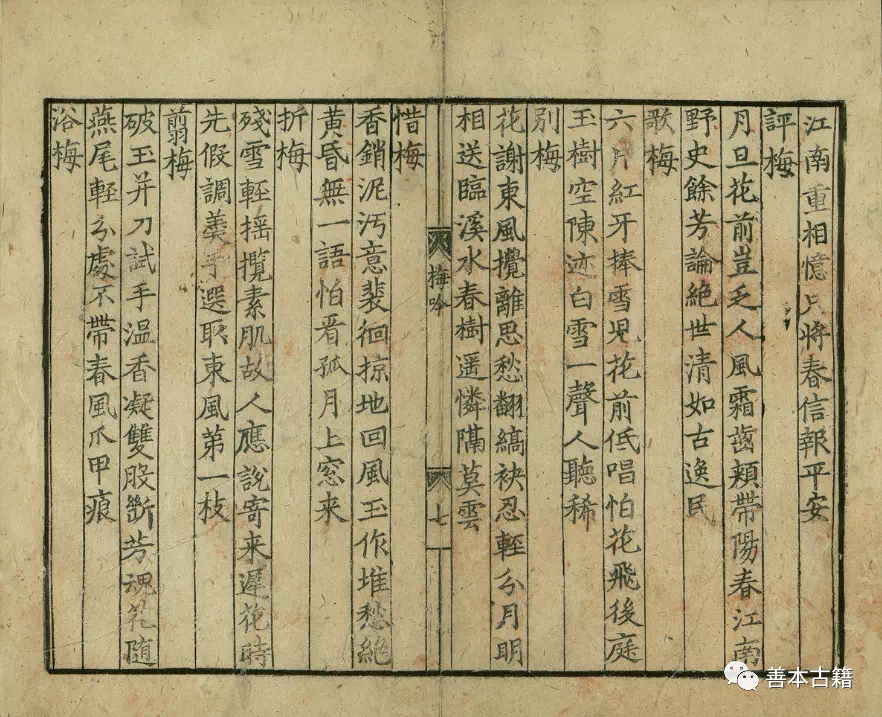 江南重相憶只将春信報平安
評梅
月旦花前豈乏人風霜齒頰帶陽春江南
野史餘芳論絶世清如古逸民
歌梅
六片紅牙捧雪児花前低唱怕花飛後庭
玉樹空陳迹白雪一聲人聽稀
别梅
花謝東風攪離思愁翻縞袂忍輕分月明
相送臨溪水春樹遥憐隔莫雲
梅吟
七
惜梅
香銷泥汚意裴徊掠地回風玉作堆愁絶
黄昏無一語怕看孤月上窓来
折梅
殘雪輕揺攬素肌故人應說寄来遲花時
先假調羮手選取東風第一枝
翦梅
破玉并刀試手温香凝雙股斷芳魂花随
燕尾輕分處不帶春風爪甲痕
浴梅
善本古籍